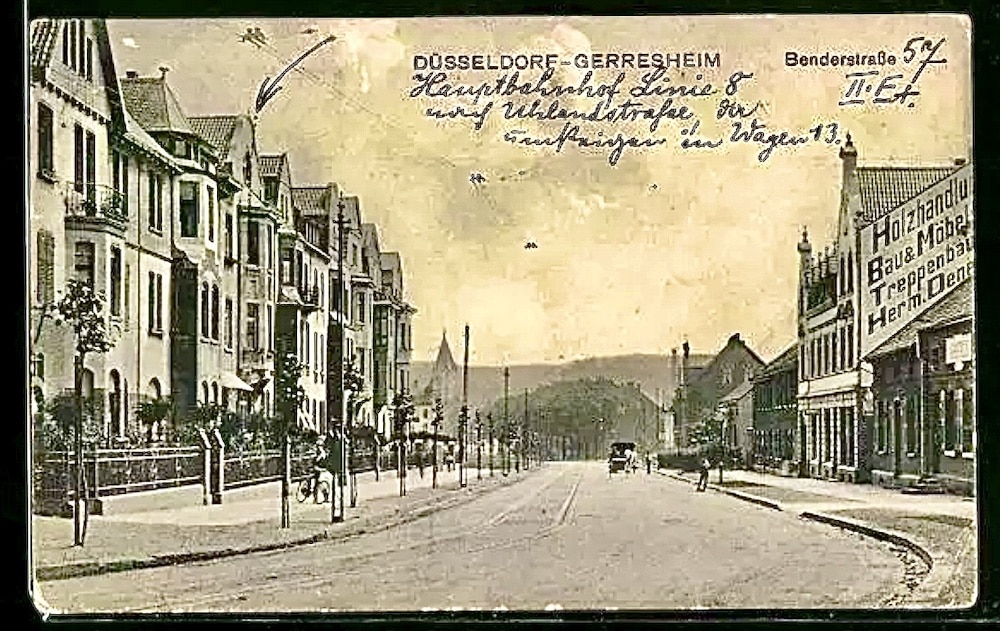 DÜSSELDORF-GERRESHEIM
Benderstraße 57
II. Et.
Hauptbahnhof Linie 8
nach Uhlandstraße, da
umsteigen in Wagen 13.
Holzhandlu
Bau & Möbel
Treppenbau
Herm. Dene